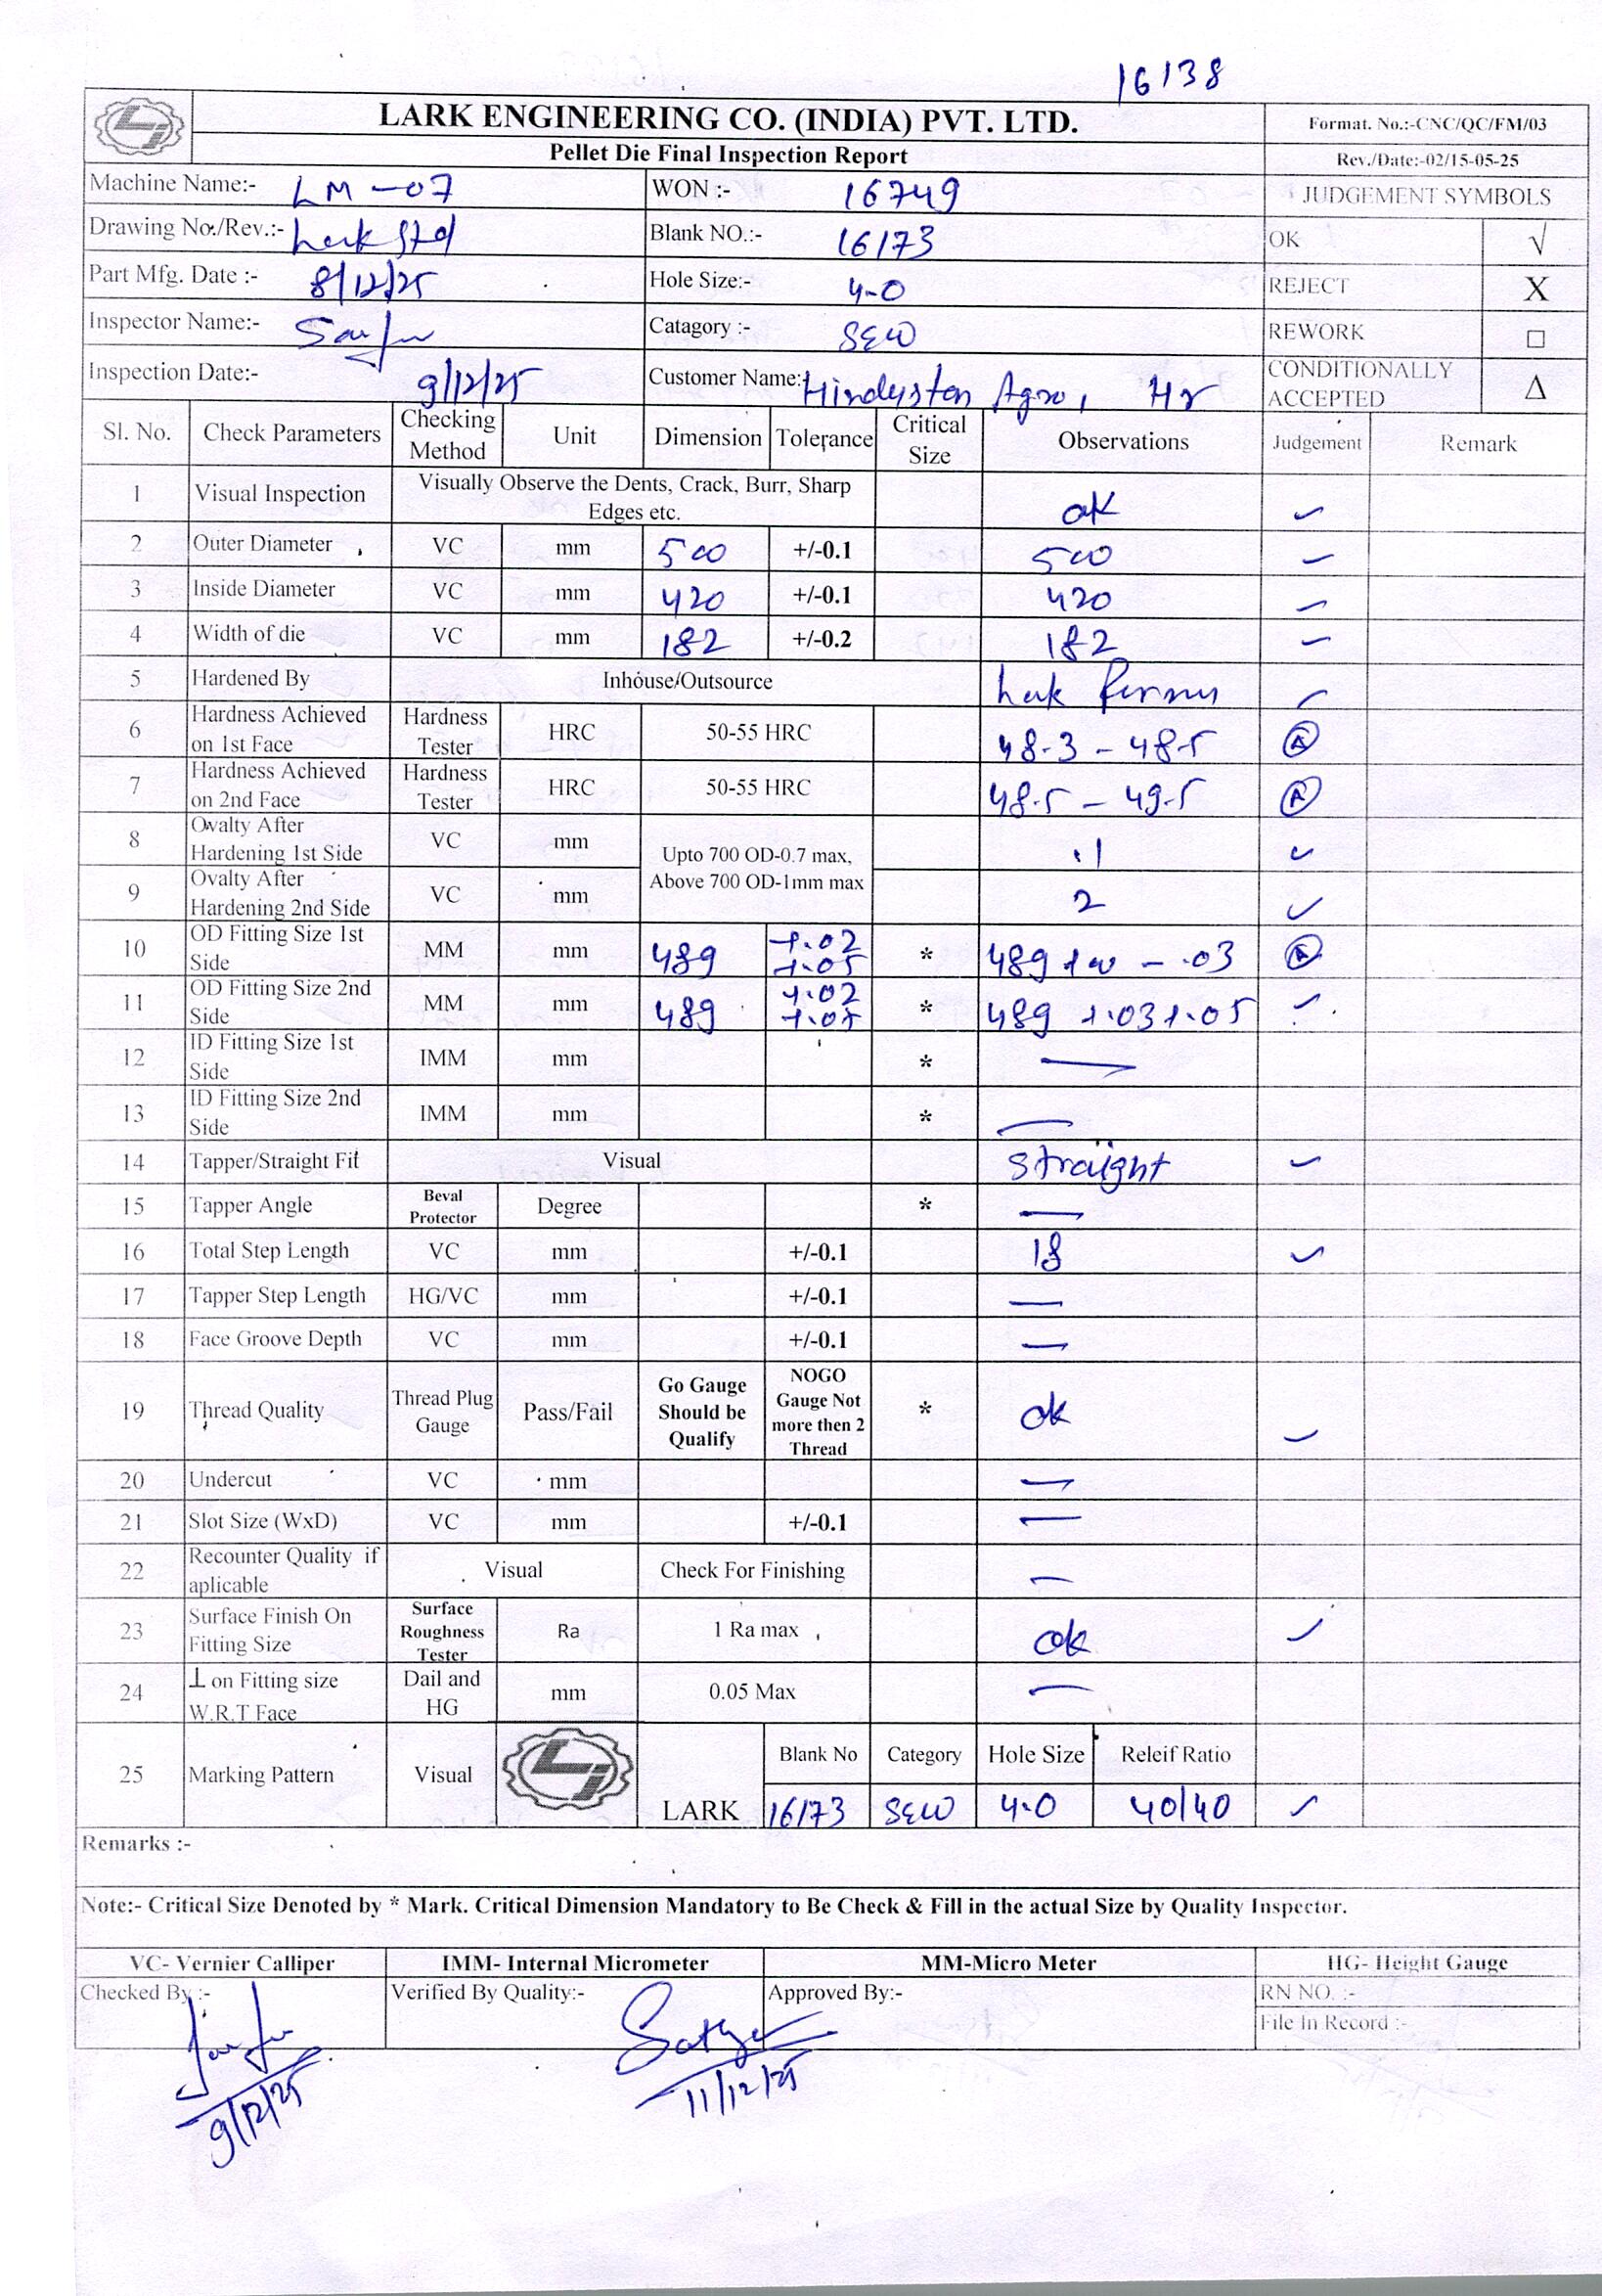 16138
LARK ENGINEERING CO. (INDIA) PVT. LTD.
Format. No.:-CNC/QC/FM/03
Pellet Die Final Inspection Report
Rev./Date:-02/15-05-25
Machine Name:- LM-07 WON :- 16749 JUDGEMENT SYMBOLS
Drawing No./Rev.:- Lark Std Blank NO.:- 16173 OK √
Part Mfg. Date :- 8/12/25 Hole Size:- 4.0 REJECT X
Inspector Name:- Catagory :- SEW REWORK □
Inspection Date:- 9/12/25 Customer Name: Hindustan Agro, Hr CONDITIONALLY ACCEPTED Δ
Sl. No. Check Parameters Checking Method Unit Dimension Tolerance Critical Size Observations Judgement Remark
1 Visual Inspection Visually Observe the Dents, Crack, Burr, Sharp Edges etc. ok ✓
2 Outer Diameter VC mm 500 +/-0.1 500 ✓
3 Inside Diameter VC mm 420 +/-0.1 420 ✓
4 Width of die VC mm 182 +/-0.2 182 ✓
5 Hardened By Inhouse/Outsource Lark ✓
6 Hardness Achieved on 1st Face Hardness Tester HRC 50-55 HRC 48.3 - 48.5 Ⓐ
7 Hardness Achieved on 2nd Face Hardness Tester HRC 50-55 HRC 48.5 - 49.5 Ⓐ
8 Ovalty After Hardening 1st Side VC mm Upto 700 OD-0.7 max, Above 700 OD-1mm max .1 ✓
9 Ovalty After Hardening 2nd Side VC mm 2 ✓
10 OD Fitting Size 1st Side MM mm 489 +.02 +.05 * 489 +00 - .03 Ⓐ
11 OD Fitting Size 2nd Side MM mm 489 +.02 * 489 +.03 +.05 ✓
12 ID Fitting Size 1st Side IMM mm * —
13 ID Fitting Size 2nd Side IMM mm * —
14 Tapper/Straight Fit Visual Straight ✓
15 Tapper Angle Beval Protector Degree * —
16 Total Step Length VC mm +/-0.1 18 ✓
17 Tapper Step Length HG/VC mm +/-0.1 —
18 Face Groove Depth VC mm +/-0.1 —
19 Thread Quality Thread Plug Gauge Pass/Fail Go Gauge Should be Qualify NOGO Gauge Not more then 2 Thread * ok ✓
20 Undercut VC mm —
21 Slot Size (WxD) VC mm +/-0.1 —
22 Recounter Quality if aplicable Visual Check For Finishing —
23 Surface Finish On Fitting Size Surface Roughness Tester Ra 1 Ra max ok ✓
24 ⊥ on Fitting size W.R.T Face Dail and HG mm 0.05 Max —
25 Marking Pattern Visual LARK Blank No Category Hole Size Releif Ratio
16173 SEW 4.0 40/40 ✓
Remarks :-
Note:- Critical Size Denoted by * Mark. Critical Dimension Mandatory to Be Check & Fill in the actual Size by Quality Inspector.
VC- Vernier Calliper IMM- Internal Micrometer MM-Micro Meter HG- Height Gauge
Checked By :- Verified By Quality:- Approved By:- RN NO. :-
File In Record :-
9/12/25 11/12/25